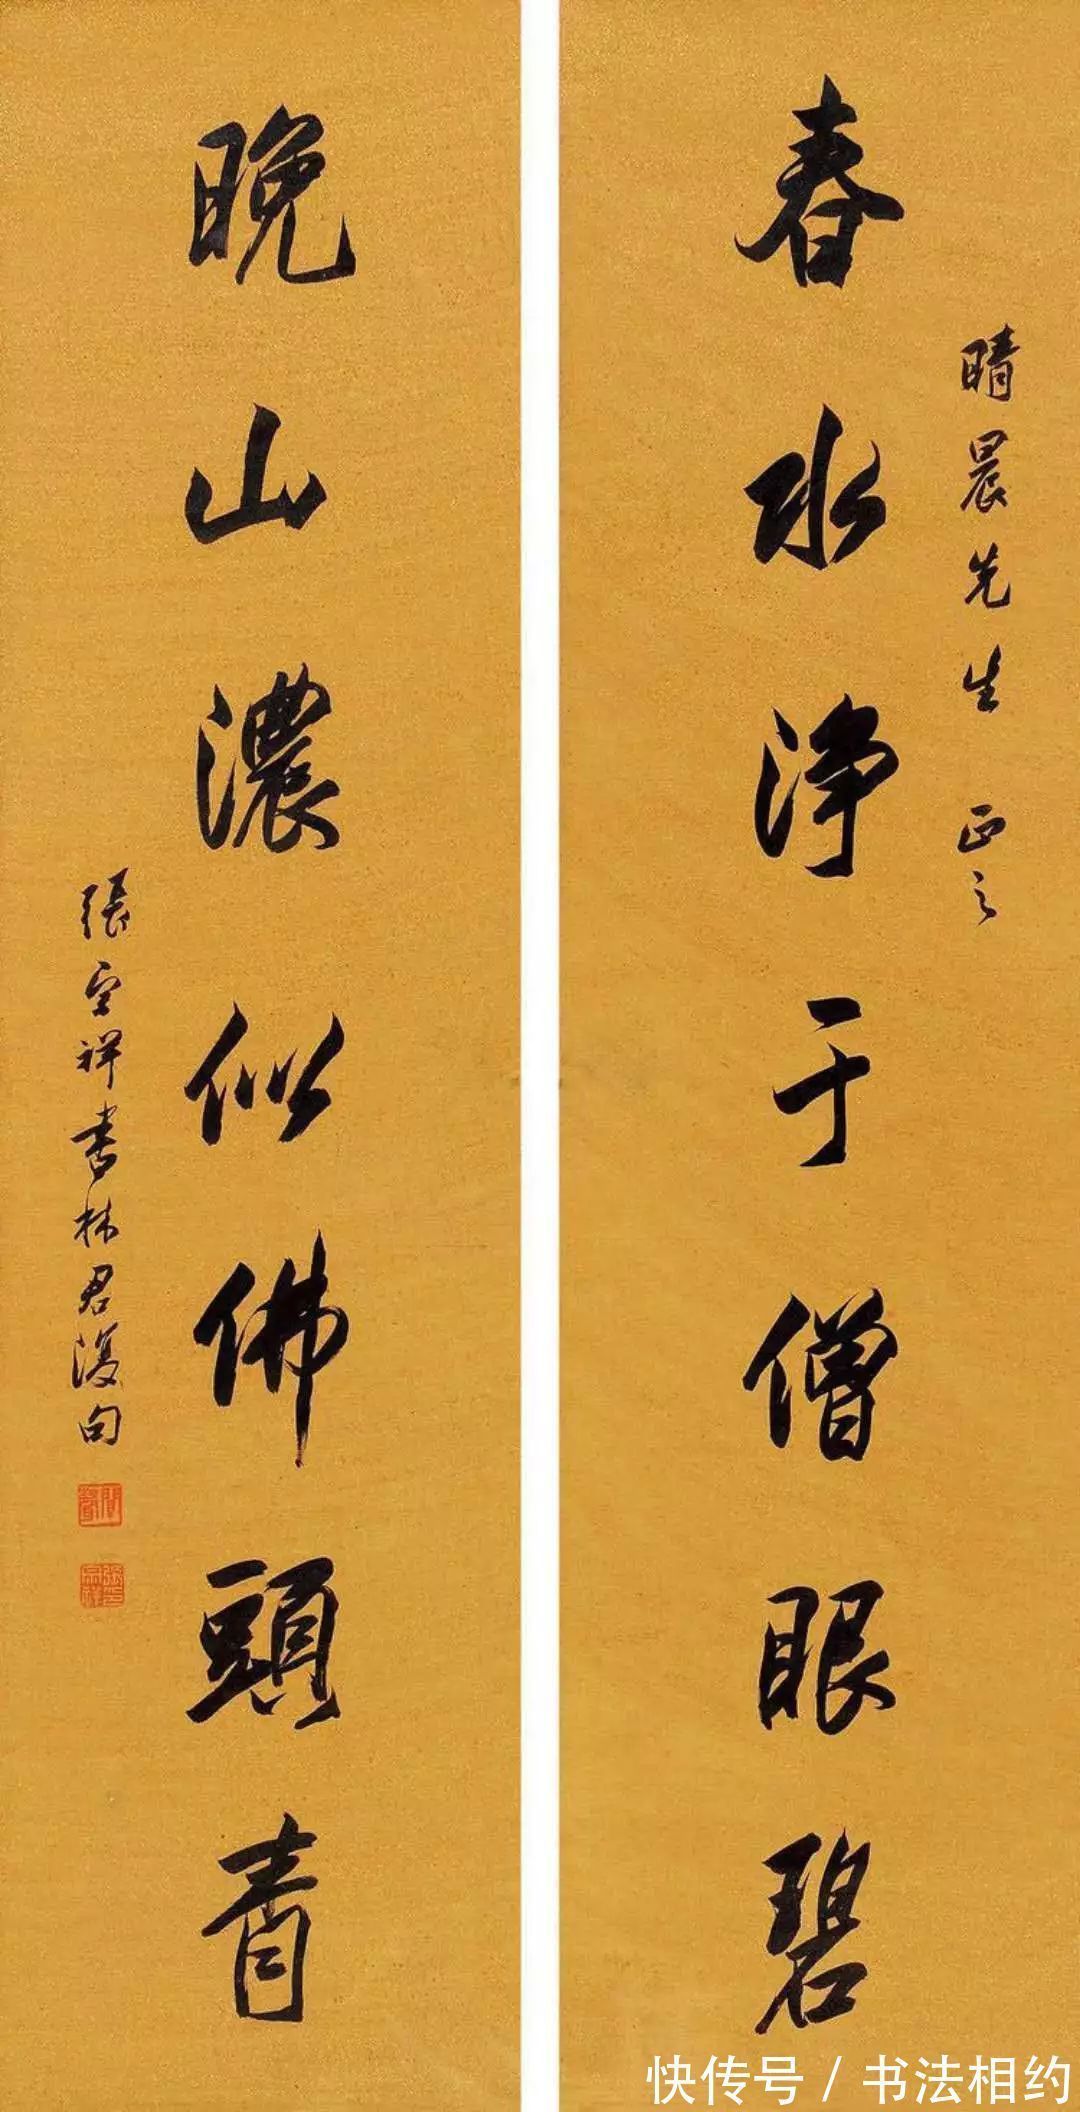 晴晨先生 正之
春水净于僧眼碧
晚山濃似佛頭青
張宗祥書林君復句
快传号 / 书法相约